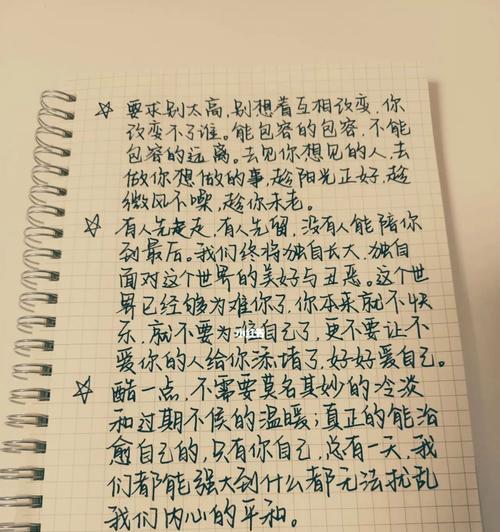 ☆ 要求别太高，别想着互相改变，你
改变不了谁。能包容的包容，不能
包容的远离。去见你想见的人，去
做你想做的事，趁阳光正好，趁
微风不噪，趁你未老。
☆ 有人先走走，有人先留，没有人能陪你
到最后。我们终将独自长大，独自
面对这个世界的美好与丑恶。这个世
界已经够为难你了，你本来就不快
乐，就不要为难自己了，更不要让不
爱你的人给你添堵了，好好爱自己。
☆ 酷一点，不需要莫名其妙的冷淡
和过期不候的温暖；真正的能治
愈自己的，只有你自己，总有一天，我
们都能强大到什么都无法扰乱
我们内心的平和。